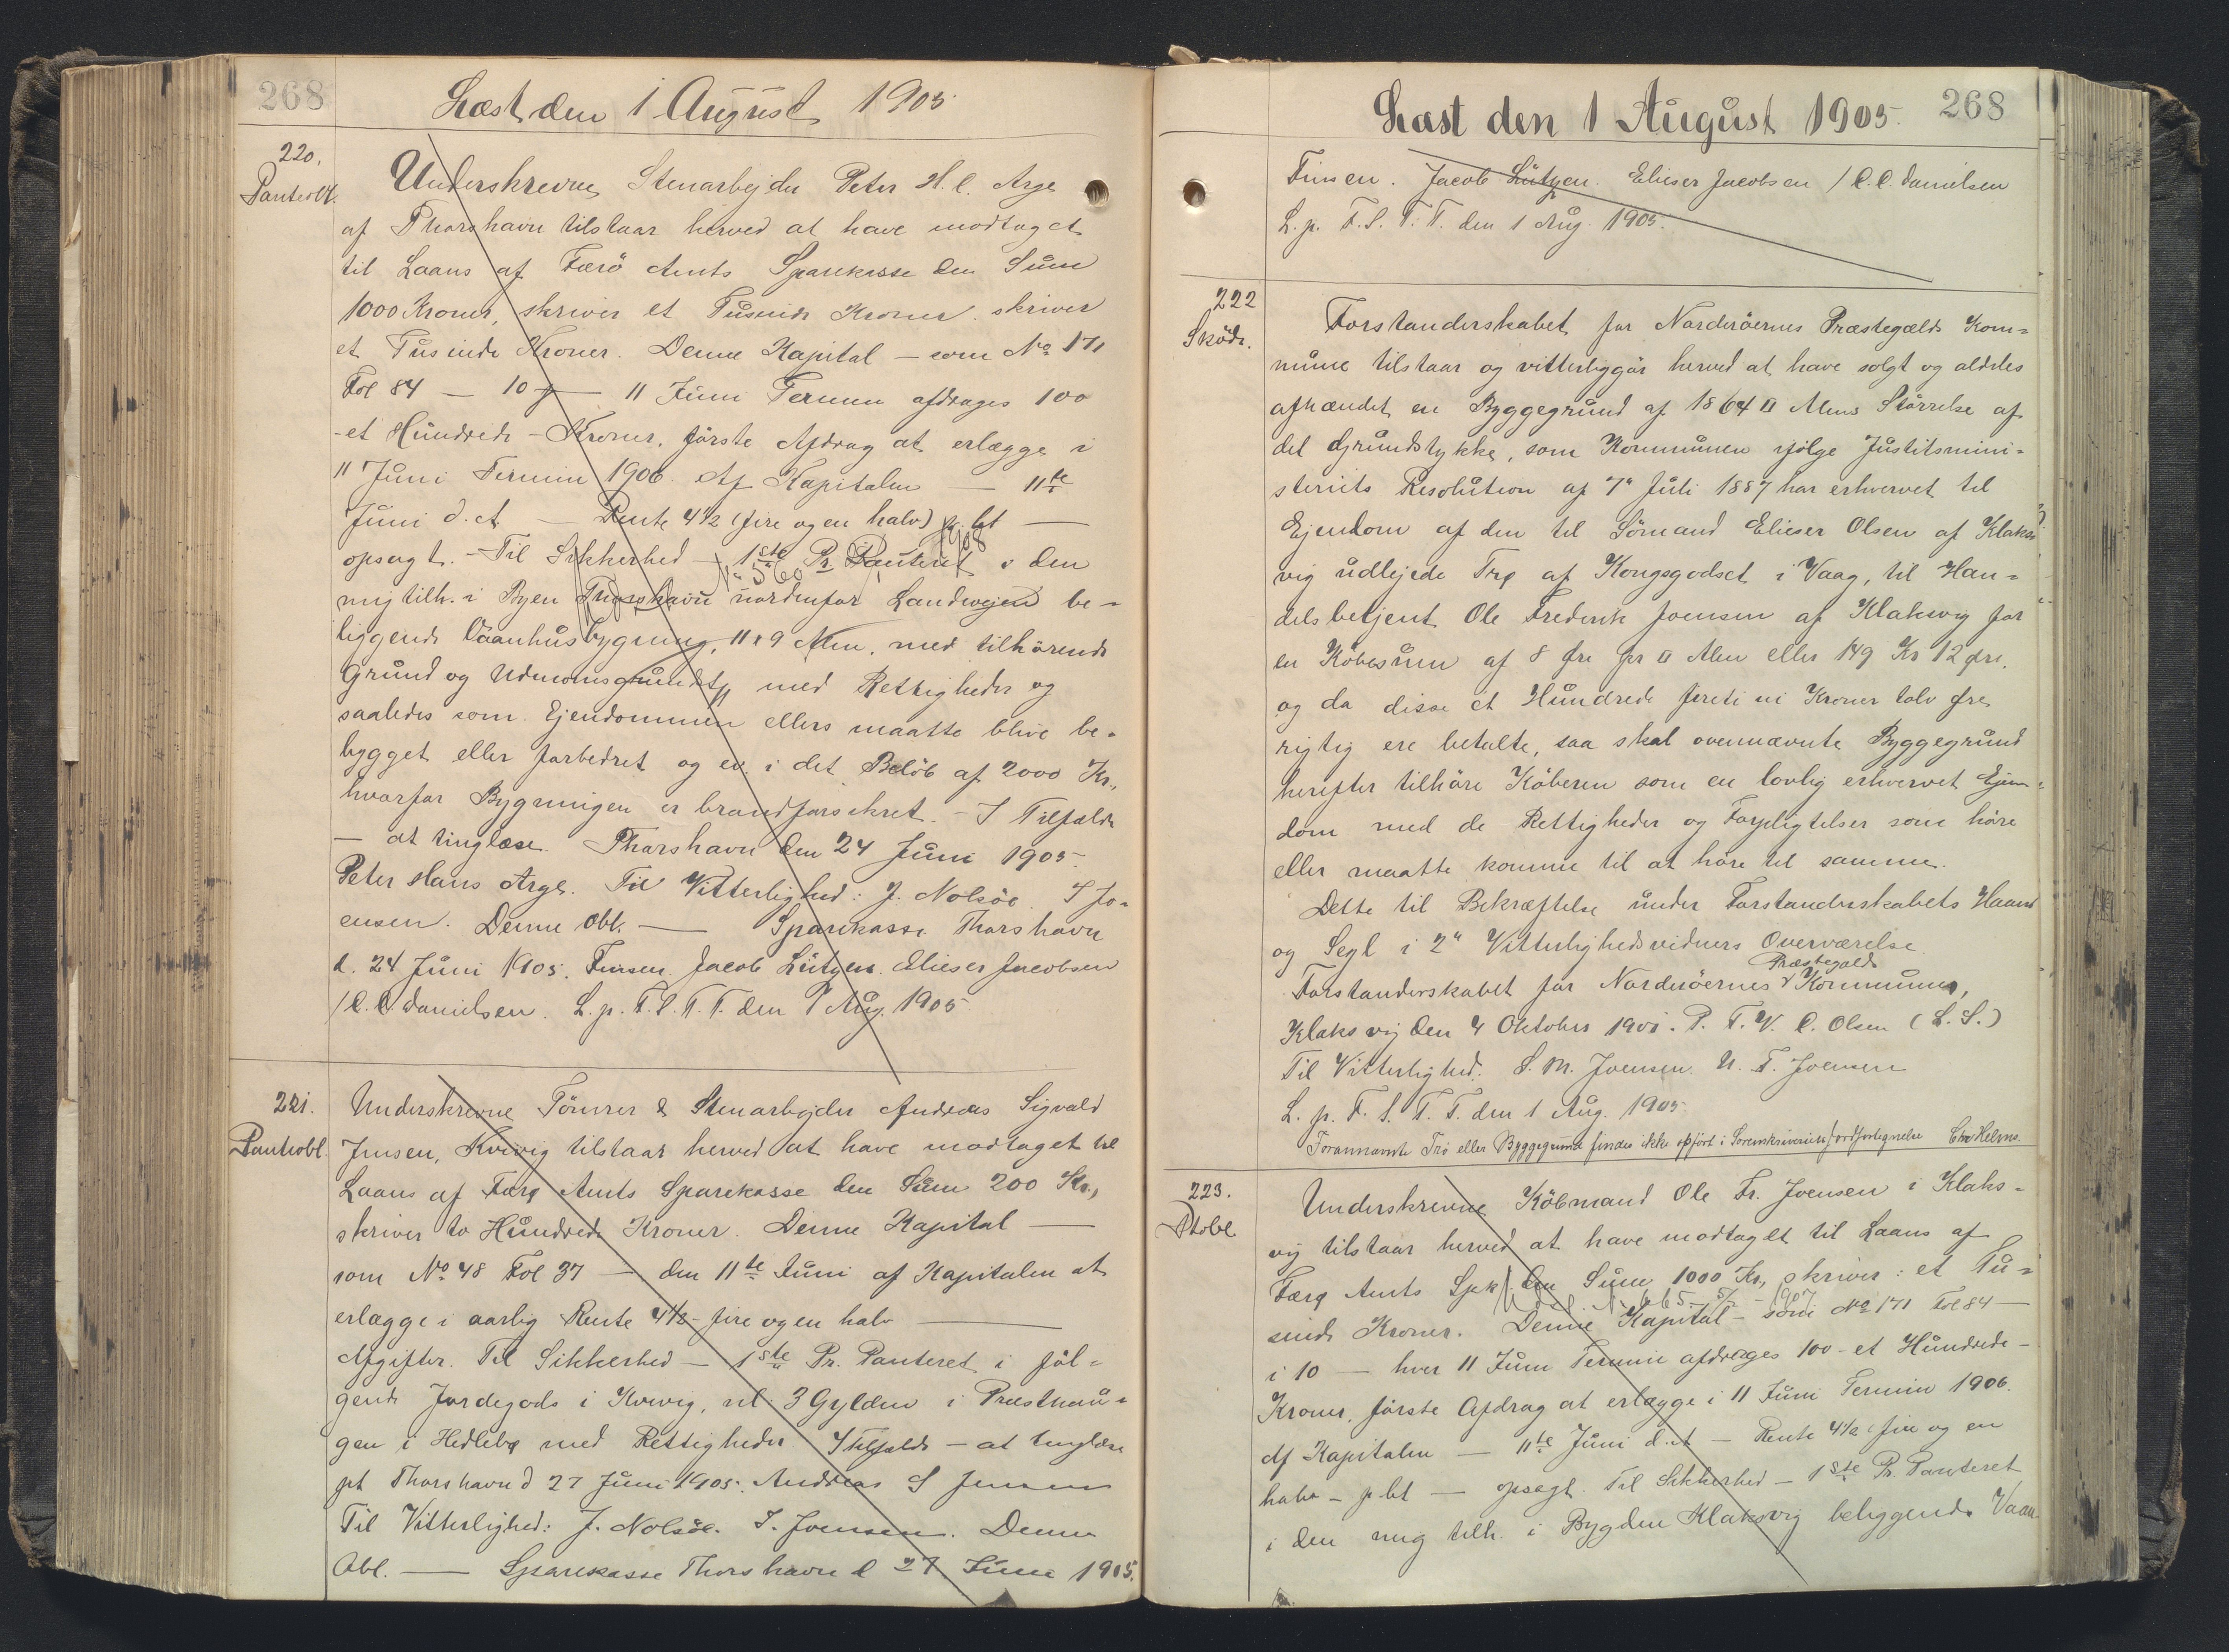 268
Læst den 1 August 1905
220.
Panteobl.
Underskrevne Stenarbejder Peter H. C. Arge
af Thorshavn tilstaar herved at have modtaget
til Laans af Færö Amts Sparekasse den Sum
1000 Kroner, skriver et Tusinde Kroner. skriver
et Tusinde Kroner. Denne Kapital – som No 171
Fol 84 — 10 — 11 Juni Termin afdrages 100
- et Hundrede - Kroner, förste Afdrag at erlægge i
11 Juni Termin 1906. Af Kapitalen — 11te
Juni d. A. — Rente 4½ (fire og en halv) p. Ct —
opsagt. - Til Sikkerhed — 1ste Pr. Panteret i den
mig tilh. i Byen Thorshavn nordenfor Landevejen be-
liggende Vaanhusbygning, 11 x 9 Alen, med tilhörende
Grund og Udmarksgrundst. med Rettigheder og
saaledes som Ejendommen ellers maatte blive be-
bygget eller forbedret og ev. i det Belöb af 2000 Kr.,
hvorfor Bygningen er brandforsikret. - I Tilfælde
— at tinglæse. Thorshavn den 24 Juni 1905.
Peter Hans Arge. Til Vitterlighed: J. Nolsöe. S Jo-
ensen. Denne Obl. — Sparekasse Thorshavn
d. 24 Juni 1905. Finsen. Jacob Lützen. Elieser Jacobsen
/ C. C. Danielsen. L. p. F. S. T. T. den 1 Aug. 1905
221.
Panteobl.
Underskrevne Tömrer & Stenarbejder Andreas Sigvald
Jensen, Kvivig tilstaar herved at have modtaget til
Laans af Færø Amts Sparekasse den Sum 200 Kr.,
skriver to Hundrede Kroner. Denne Kapital —
som No 48 Fol 37 — den 11te Juni af Kapitalen at
erlægge i aarlig Rente 4½ - fire og en halv —
Afgifter. Til Sikkerhed — 1ste Pr. Panteret i föl-
gende Jordegods i Kvivig, nl. 3 Gylden i Præsthau-
gen i Hedlebø med Rettigheder. I Tilfælde — at tinglæse
pt Thorshavn d 27 Juni 1905. Andreas S Jensen
Til Vitterlighed: J. Nolsöe. S. Joensen. Denne
Obl. — Sparekasse Thorshavn d 27 Juni 1905.
Læst den 1 August 1905. 268
Finsen. Jacob Lützen. Elieser Jacobsen / C. C. Danielsen
L. p. F. S. T. T. den 1 Aug. 1905.
222
Sköde.
Forstanderskabet for Norderöernes Præstegælds Kom-
mune tilstaar og vitterliggör herved at have solgt og aldeles
afhændet en Byggegrund af 1864 □ Alens Störrelse af
det Grundstykke, som Kommunen ifölge Justitsmini-
steriets Resolution af 7de Juli 1887 har erhvervet til
Ejendom af den til Sömand Elieser Olsen af Klaks-
vig udlejede Trø af Kongsgodset i Vaag, til Han-
delsbetjent Ole Frederik Joensen af Klaksvig for
en Köbesum af 8 Øre pr □ Alen eller 149 Kr 12 Øre.
og da disse et Hundrede fireti ni Kroner tolv Øre
rigtig ere betalte, saa skal ovennævnte Byggegrund
herefter tilhöre Köberen som en lovlig erhvervet Ejen-
dom med de Rettigheder og Forpligtelser som höre
eller maatte komme til at höre til samme.
Dette til Bekræftelse under Forstanderskabets Haand
og Segl i 2de Vitterlighedsvidners Overværelse.
Forstanderskabet for Norderöernes Præstegælds Kommune,
Klaksvig den 4 Oktober 1901. P. F. V. C. Olsen (L. S.)
Til Vitterlighed. S. M. Joensen. U. F. Joensen
L. p. F. S. T. T. den 1 Aug. 1905
Forannævnte Trö eller Byggegrund findes ikke opfört i Sorenskriveriets Jordfortegnelse
223.
Ptobl
Underskrevne Köbmand Ole Fr. Joensen i Klaks-
vig tilstaar herved at have modtaget til Laans af
Færø Amts Spk. den Sum 1000 Kr., skriver: et Tu-
sinde Kroner. Denne Kapital - som No 171 Fol 84 —
i 10 — hver 11 Juni Termin afdrages 100 - et Hundrede -
Kroner, förste Afdrag at erlægge i 11 Juni Termin 1906.
Af Kapitalen — 11te Juni d. A. — Rente 4½ (fire og en
halv - p. Ct — opsagt. Til Sikkerhed — 1ste Pr. Panteret
i den mig tilh. i Bygden Klaksvig beliggende Vaan